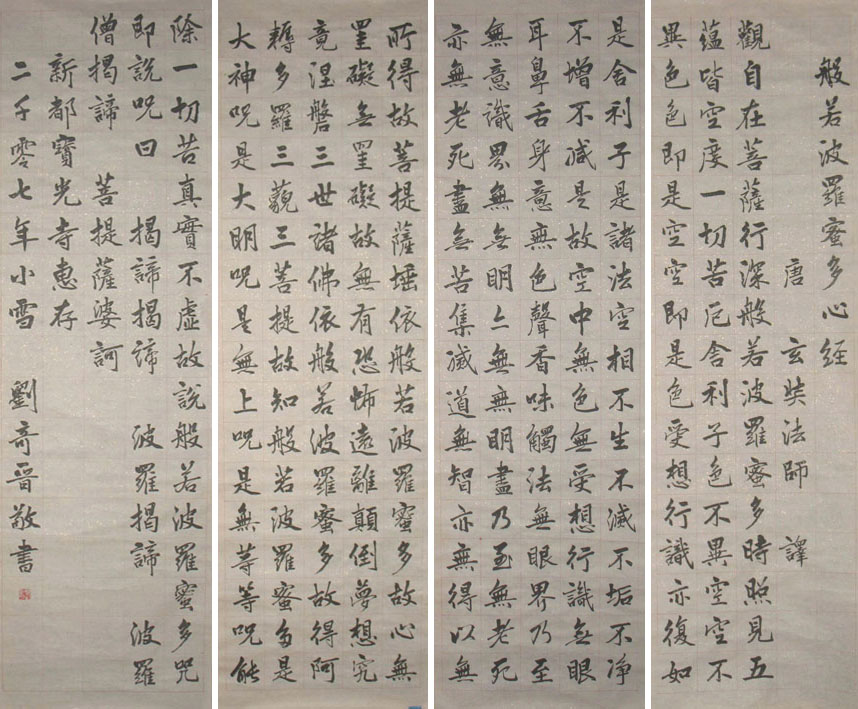 般若波羅蜜多心經
唐 玄奘法師 譯
觀自在菩薩行深般若波羅蜜多時照見五
蘊皆空度一切苦厄舍利子色不異空空不
異色色即是空空即是色受想行識亦復如
是舍利子是諸法空相不生不滅不垢不净
不增不减是故空中無色無受想行識無眼
耳鼻舌身意無色聲香味觸法無眼界乃至
無意識界無無明亦無無明盡乃至無老死
亦無老死盡無苦集滅道無智亦無得以無
所得故菩提薩埵依般若波羅蜜多故心無
罣礙無罣礙故無有恐怖遠離顛倒夢想究
竟涅槃三世諸佛依般若波羅蜜多故得阿
耨多羅三藐三菩提故知般若波羅蜜多是
大神咒是大明咒是無上咒是無等等咒能
除一切苦真實不虛故說般若波羅蜜多咒
即說咒曰 揭諦揭諦 波羅揭諦 波羅
僧揭諦 菩提薩婆訶
新都寶光寺惠存
二千零七年小雪 劉奇晉敬書